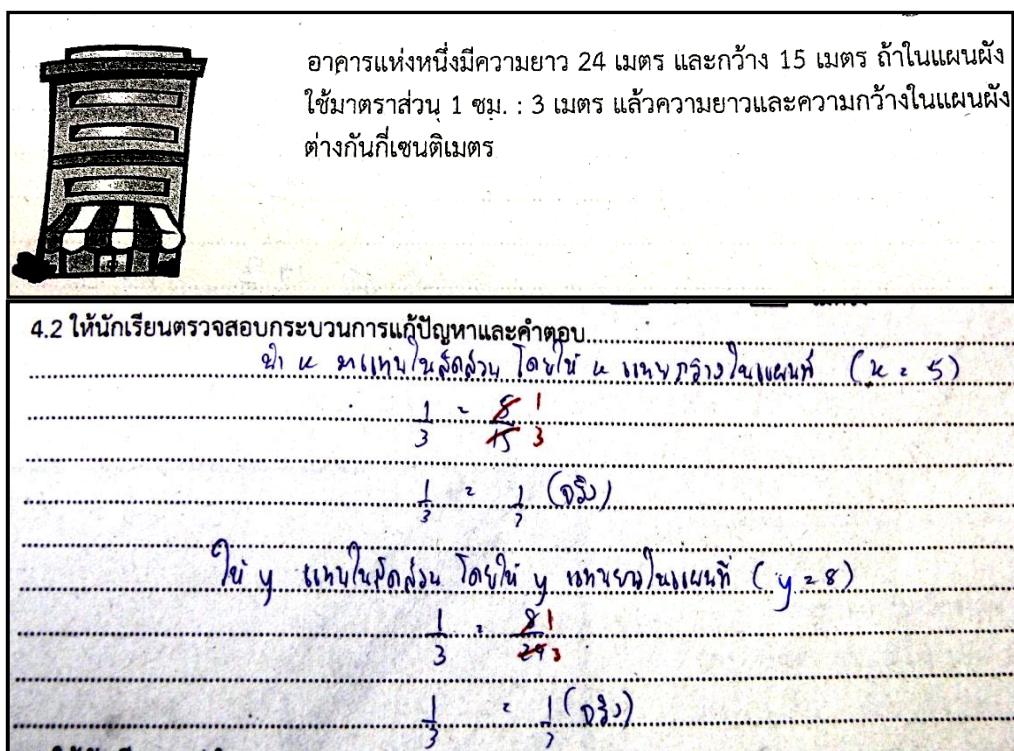 อาคารแห่งหนึ่งมีความยาว 24 เมตร และกว้าง 15 เมตร ถ้าในแผนผัง
ใช้มาตราส่วน 1 ซม. : 3 เมตร แล้วความยาวและความกว้างในแผนผัง
ต่างกันกี่เซนติเมตร
4.2 ให้นักเรียนตรวจสอบกระบวนการแก้ปัญหาและคำตอบ
นำ x มาแทนในสัดส่วน โดยให้ x แทนกว้างในแผนที่ (x = 5)
1/3 = 5/15 1/3
1/3 = 1/3 (จริง)
ให้ y แทนในสัดส่วน โดยให้ y แทนยาวในแผนที่ (y = 8)
1/3 = 8/24 1/3
1/3 = 1/3 (จริง)